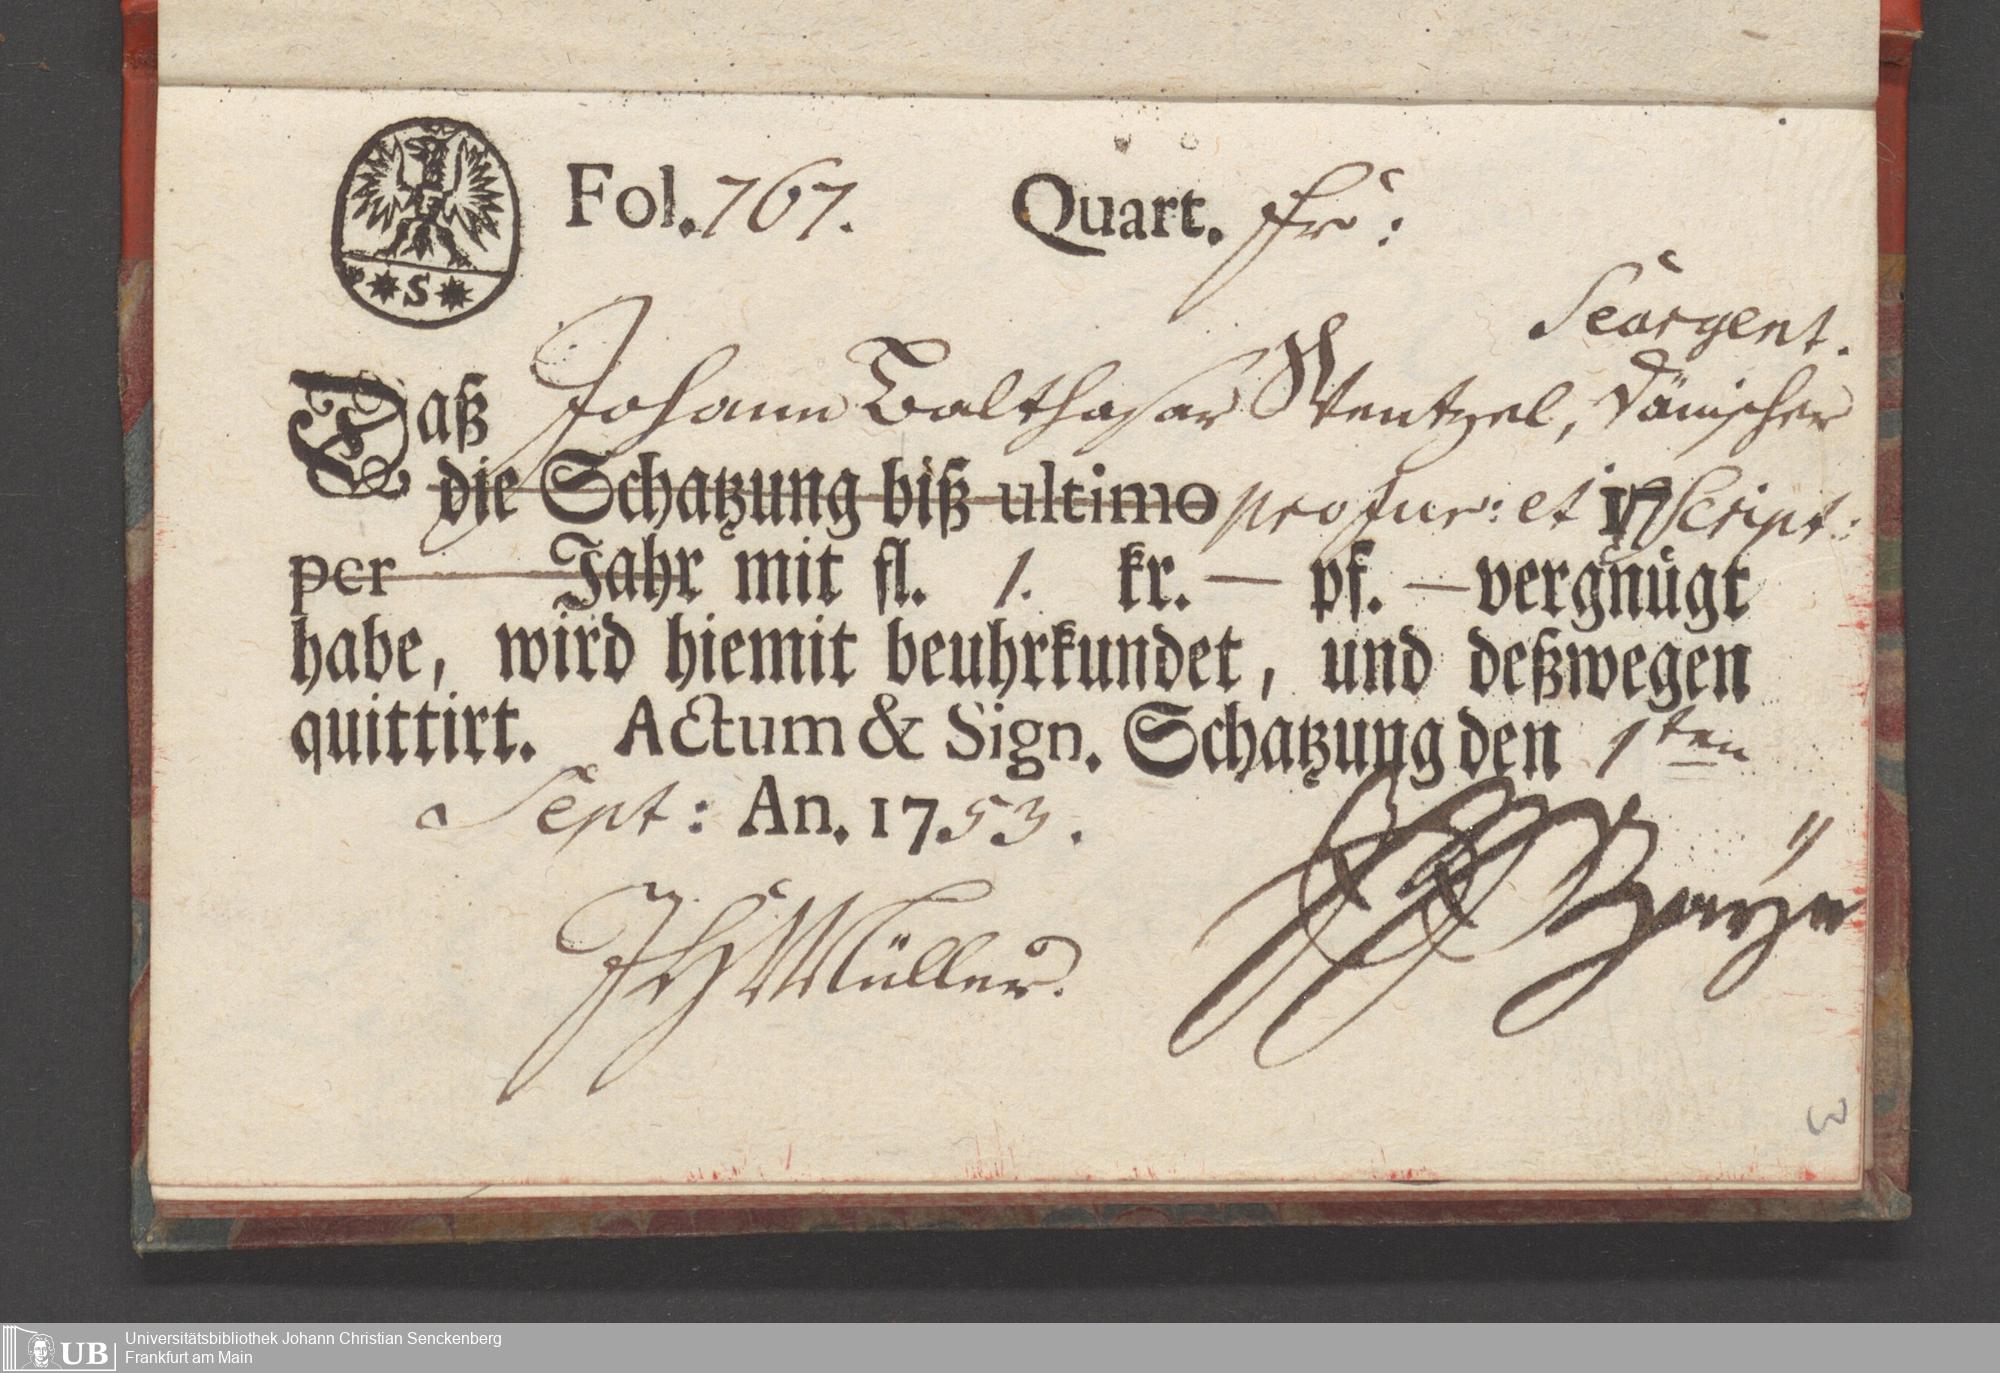 Fol. 767. Quart. fr:
* S *
Seargent.
Daß Johann Balthasar Wentzel, Dänischer
die Schatzung biß ultimo pro jur: et 17 Script:
per Jahr mit fl. 1. kr. — pf. — vergnügt
habe, wird hiemit beuhrkundet, und deßwegen
quittirt. Actum & Sign. Schatzung den 1ten
Sept: An. 1753.
JH Müller.
3
UB Universitätsbibliothek Johann Christian Senckenberg
Frankfurt am Main